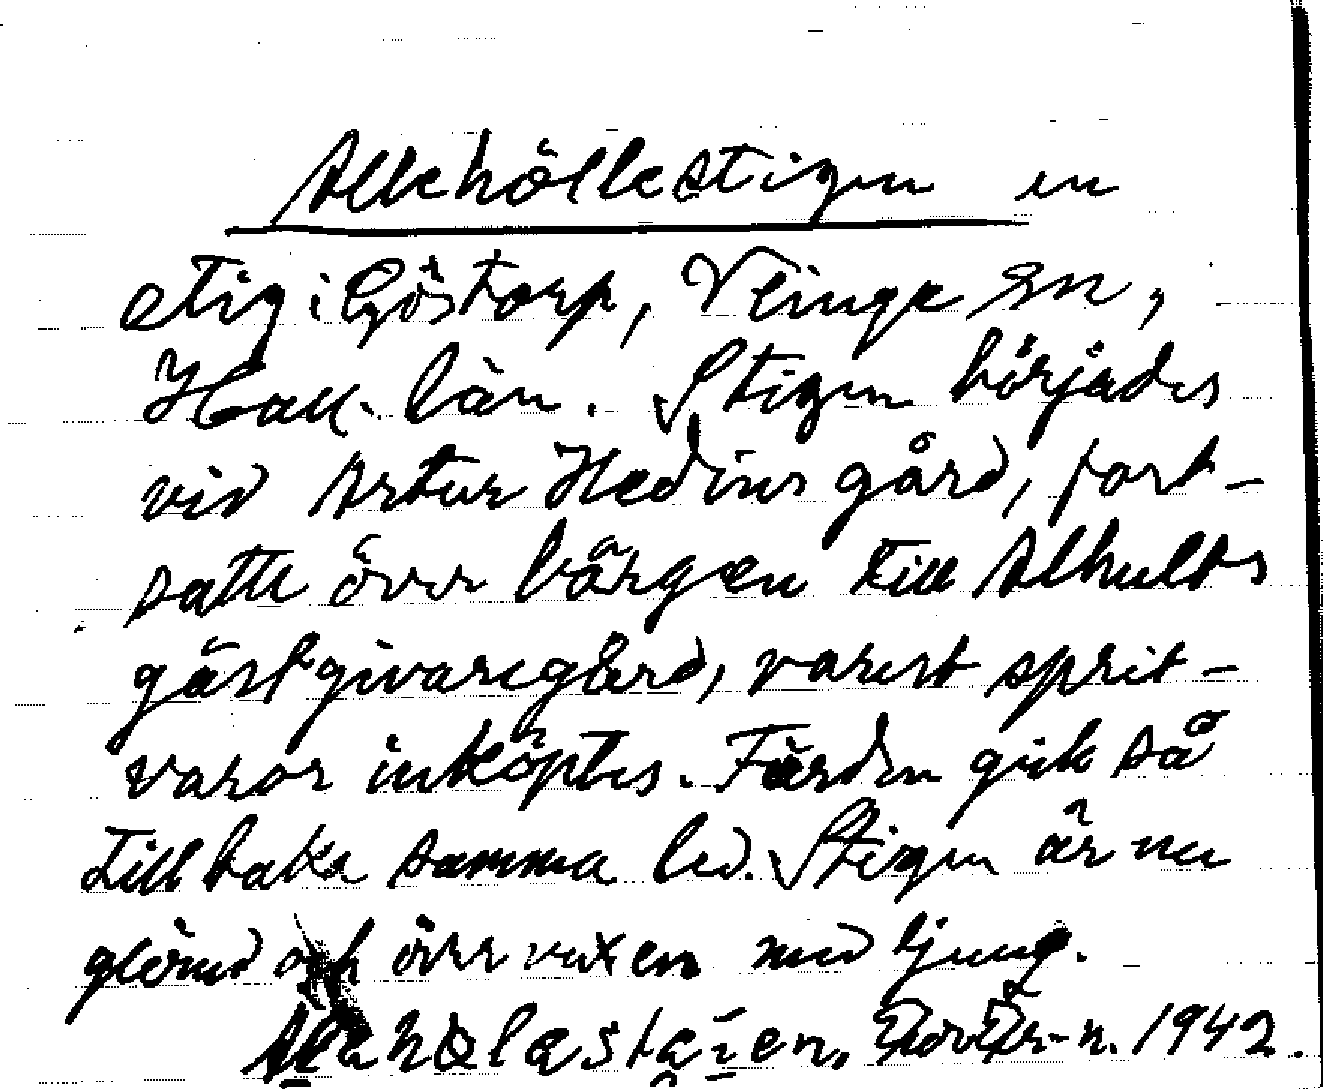 Allehöllestigen en
stig i Göstorp, Veinge sn,
Hall. län. Stigen började
vid Artur Hedins gård, fort-
satte över bärgen till Alhults
gästgivaregård, varest sprit-
varor inköptes. Färden gick så
tillbaka samma led. Stigen är nu
glömd och övervuxen med ljung.
1942.